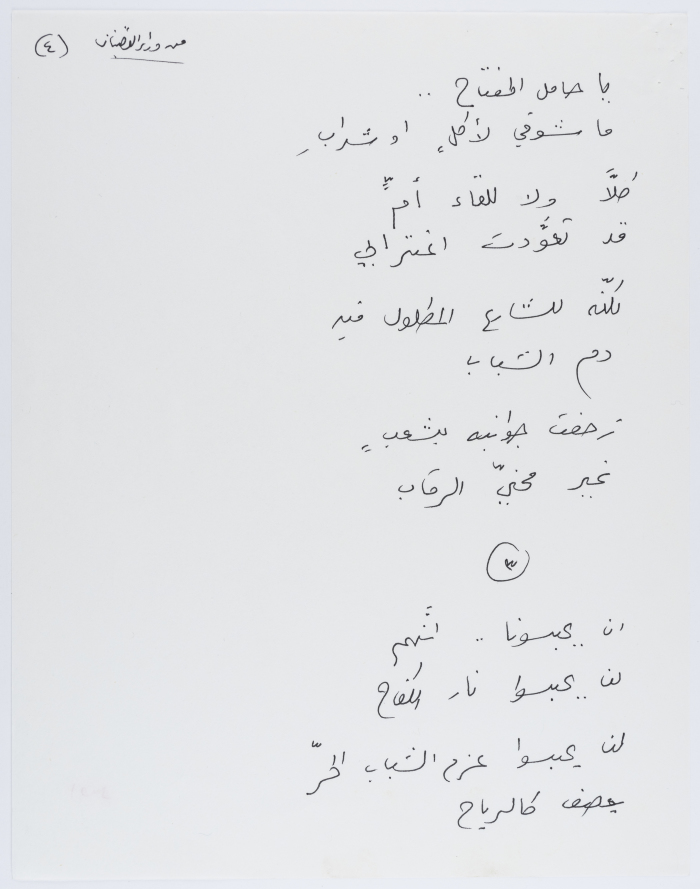 من وراء القضبان (٤)
يا حامل المفتاح ..
ما شوقي لأكلٍ او شرابِ
كلَّا ولا للقاء أمٍّ
قد تعوَّدت اغترابي
لكنّه للشارع المطلول فيه
دم الشباب
زخفت جوانبه بشعبٍ
غير محنيّ الرقاب
٣
ان يحبسونا .. انَّهم
لن يحبسوا نار الكفاح
لن يحبسوا عزم الشباب الحرّ
يعصف كالرياح